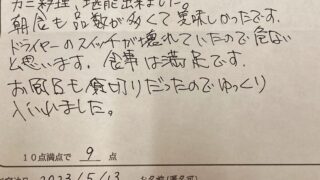 カニ料理、堪能出来ました。
朝食も品数が多くて美味しかったです。
ドライヤーのスイッチが壊れていたので危ない
と思います。食事は満点です。
お風呂も貸切りだったのでゆっくり
入いれました。
10点満点で 9 点
2023/5/13